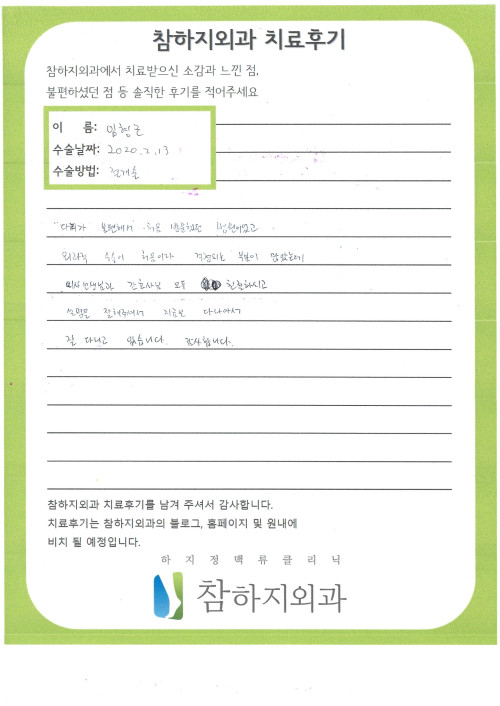 참하지외과 치료후기
참하지외과에서 치료받으신 소감과 느낀 점,
불편하셨던 점 등 솔직한 후기를 적어주세요
이 름: 임형근
수술날짜: 2020.2.13
수술방법: 절개술
다리가 불편해서 처음 방문했던 병원이었고
수술이 처음이라 걱정되는 부분이 많았는데
의사선생님과 간호사님 모두 친절하시고
설명을 잘해주셔서 지금은 다나아서
잘 다니고 있습니다. 감사합니다.
참하지외과 치료후기를 남겨 주셔서 감사합니다.
치료후기는 참하지외과의 블로그, 홈페이지 및 원내에
비치 될 예정입니다.
하지정맥류클리닉
참하지외과